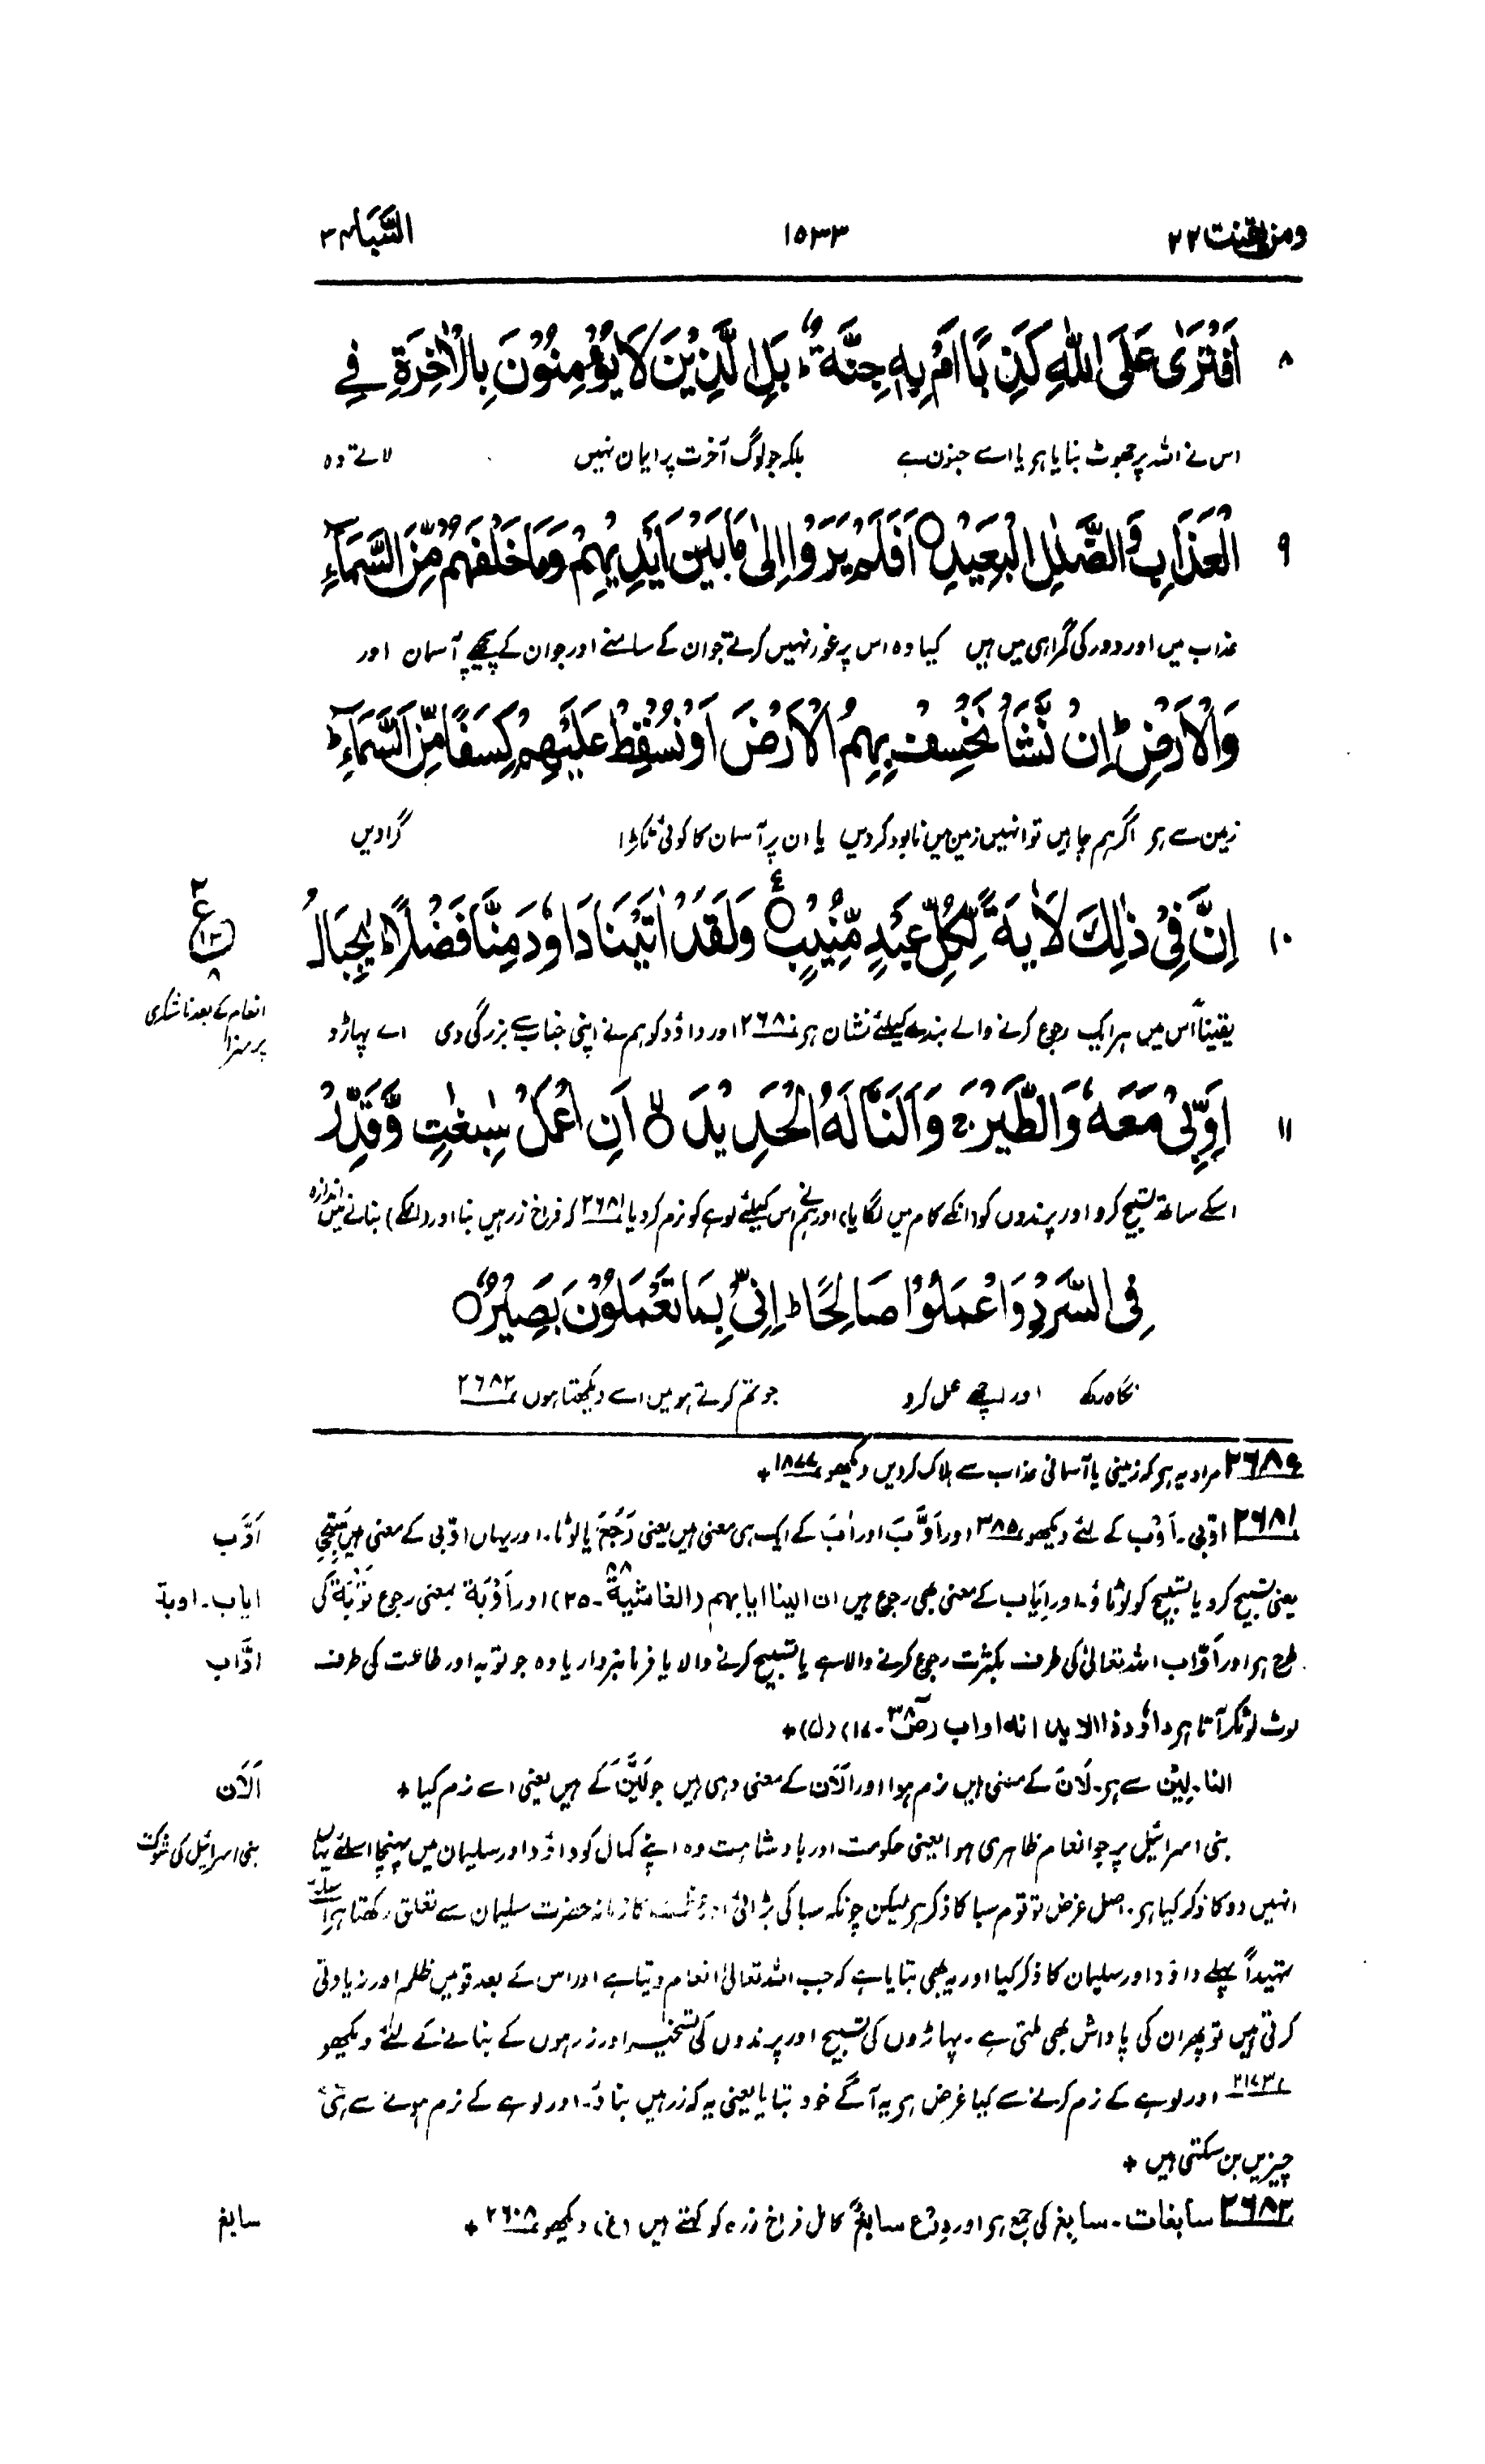 ومن یقنت ۲۲ ۱۵۳۳ السّبا ۳۴
۸ اَفْتَرٰى عَلَى اللّٰهِ كَذِبًا اَمْ بِهٖ جِنَّةٌ ؕ بَلِ الَّذِیْنَ لَا یُؤْمِنُوْنَ بِالْاٰخِرَةِ فِی
اس نے اللہ پر جھوٹ بنایا ہر یا اسے جنون ہے بلکہ جو لوگ آخرت پر ایمان نہیں لاتے وہ
۹ الْعَذَابِ وَ الضَّلٰلِ الْبَعِیْدِ ○ اَفَلَمْ یَرَوْا اِلٰى مَا بَیْنَ اَیْدِیْهِمْ وَمَا خَلْفَهُمْ مِّنَ السَّمَآءِ
عذاب میں اور دور کی گمراہی میں ہیں کیا وہ اس پر غور نہیں کرتے جو ان کے سامنے اور جو ان کے پیچھے آسمان اور
وَالْاَرْضِ ؕ اِنْ نَّشَاْ نَخْسِفْ بِهِمُ الْاَرْضَ اَوْ نُسْقِطْ عَلَیْهِمْ كِسَفًا مِّنَ السَّمَآءِ ؕ
زمین سے ہر اگر ہم چاہیں تو انہیں زمین میں نابود کردیں یا ان پر آسمان کا کوئی ٹکڑا گرادیں
۱۰ اِنَّ فِیْ ذٰلِكَ لَاٰیَةً لِّكُلِّ عَبْدٍ مُّنِیْبٍ ○ وَلَقَدْ اٰتَیْنَا دَاوٗدَ مِنَّا فَضْلًا ؕ یٰجِبَالُ
۲
ع
۱۳
۸
انعام کے بعد ناشکری
پر سزا
یقیناً اس میں ہر ایک رجوع کرنے والے بندے کیلئے نشان ہر ۲۶۸۰ اور داؤد کو ہم نے اپنی جناب سے بزرگی دی اے پہاڑو
۱۱ اَوِّبِیْ مَعَهٗ وَالطَّیْرَ ۚ وَاَلَنَّا لَهُ الْحَدِیْدَ ○ اَنِ اعْمَلْ سٰبِغٰتٍ وَّقَدِّرْ
اسکے ساتھ تسبیح کرو اور پرندوں کو (انکے کام میں لگایا) اور ہم نے اس کیلئے لوہے کو نرم کردیا ۲۶۸۱ کہ فراخ زرہیں بنا اور (انکے) بنانے میں اندازہ
فِی السَّرْدِ وَاعْمَلُوْا صَالِحًا ؕ اِنِّیْ بِمَا تَعْمَلُوْنَ بَصِیْرٌ ○
نگاہ رکھ اور اچھے عمل کرو جو تم کرتے ہو میں اسے دیکھتا ہوں ۲۶۸۲
۲۶۸۰ مراد یہ ہر کہ زمینی یا آسمانی عذاب سے ہلاک کردیں دیکھو ۱۸۷۷ +
۲۶۸۱ اوّبی۔ اَوْب کے لئے دیکھو ۳۸۵ اور اَوَّبَ اور اٰبَ کے ایک ہی معنی ہیں یعنی رَجَعَ یا لوٹا۔ اور یہاں اوّبی کے معنی ہیں سَبِّحِی
اَوَّب
یعنی تسبیح کرو یا تسبیح کو لوٹاؤ اور اِیَاب کے معنی بھی رجوع ہیں ان الینا ایابہم (الغاشیة ۸۸ ۔ ۲۵) اور اَوْبَة بمعنی رجوع تَوْبَة کی
ایاب۔ اوبة
طرح ہر اور اَوّاب اللہ تعالیٰ کی طرف بکثرت رجوع کرنے والا ہے یا تسبیح کرنے والا یا فرمانبردار یا وہ جو توبہ اور طاعت کی طرف
اوّاب
لوٹ لوٹکر آتا ہر داوٗد ذاالاید انہ اواب (صٓ ۳۸ ۔ ۱۷) (ل) +
النا۔ لِیْن سے ہر۔ لَانَ کے معنی ہیں نرم ہوا اور اَلَانَ کے معنی وہی ہیں جو لَیَّنَ کے ہیں یعنی اسے نرم کیا +
اَلَانَ
بنی اسرائیل پر جو انعام ظاہری ہوا یعنی حکومت اور بادشاہت وہ اپنے کمال کو داؤد اور سلیمان میں پہنچا اسلئے یہاں
بنی اسرائیل کی شوکت
انہیں دو کا ذکر کیا ہر۔ اصل غرض تو قوم سبا کا ذکر ہر لیکن چونکہ سبا کی بڑائی اور عظمت کا زمانہ حضرت سلیمان سے تعلق رکھتا ہر اسلئے
تمہیداً پہلے داؤد اور سلیمان کا ذکر کیا اور یہ بھی بتایا ہے کہ جب اللہ تعالیٰ انعام دیتا ہے اور اس کے بعد قومیں ظلم اور زیادتی
کرتی ہیں تو پھر ان کی پاداش بھی ملتی ہے۔ پہاڑوں کی تسبیح اور پرندوں کی تسخیر اور زرہوں کے بنانے کے لئے دیکھو
۲۱۷۳ اور لوہے کے نرم کرنے سے کیا غرض ہر یہ آگے خود بتایا یعنی یہ کہ زرہیں بناؤ۔ اور لوہے کے نرم ہونے سے ہی
چیزیں بن سکتی ہیں +
۲۶۸۲ سابغات۔ سابِغ کی جمع ہر اور دِرْع سابِغٌ کامل فراخ زرہ کو کہتے ہیں (غ) دیکھو ۲۶۰۸ +
سابغ